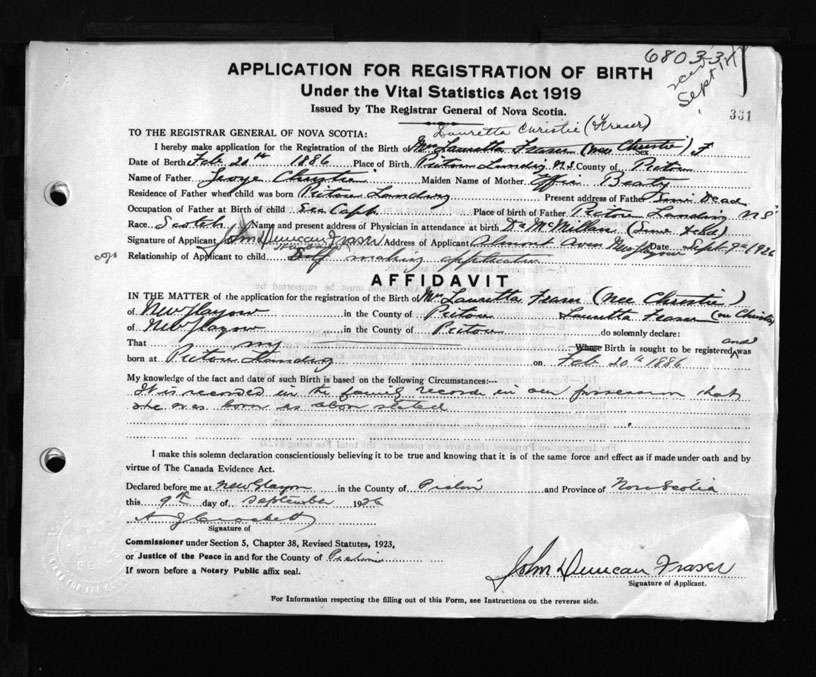 68033
Sept 17
331
APPLICATION FOR REGISTRATION OF BIRTH
Under the Vital Statistics Act 1919
Issued by The Registrar General of Nova Scotia.
Lauretta Christie (Fraser)
TO THE REGISTRAR GENERAL OF NOVA SCOTIA:
I hereby make application for the Registration of the Birth of Mrs Lauretta Fraser (nee Christie) F
Date of Birth Feb. 20th 1886 Place of Birth Pictou Landing N.S. County of Pictou
Name of Father George Christie Maiden Name of Mother Effie Beaty
Residence of Father when child was born Pictou Landing Present address of Father Dead
Occupation of Father at Birth of child Sea Capt. Place of birth of Father Pictou Landing NS
Race Scotch Name and present address of Physician in attendance at birth Dr McMillan
Signature of Applicant John Duncan Fraser Address of Applicant New Glasgow Date Sept. 9th 1926
Relationship of Applicant to child Self making application
AFFIDAVIT
IN THE MATTER of the application for the registration of the Birth of Mrs Lauretta Fraser (nee Christie)
of New Glasgow in the County of Pictou Lauretta Fraser (nee Christie)
of New Glasgow in the County of Pictou do solemnly declare:
That my Whose Birth is sought to be registered and was
born at Pictou Landing on Feb 20th 1886
My knowledge of the fact and date of such Birth is based on the following Circumstances:—
It is recorded in the family records in our possession that
she was born as above stated
I make this solemn declaration conscientiously believing it to be true and knowing that it is of the same force and effect as if made under oath and by
virtue of The Canada Evidence Act.
Declared before me at New Glasgow in the County of Pictou and Province of Nova Scotia
this 9th day of September 1926
Signature of
Commissioner under Section 5, Chapter 38, Revised Statutes, 1923,
or Justice of the Peace in and for the County of Pictou
If sworn before a Notary Public affix seal.
John Duncan Fraser
Signature of Applicant.
For Information respecting the filling out of this Form, see Instructions on the reverse side.